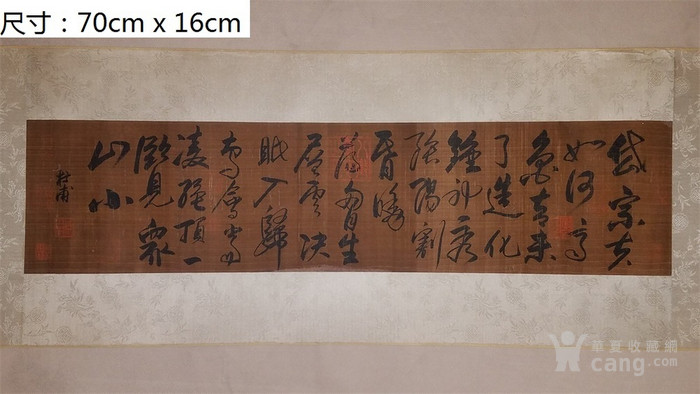 尺寸：70cm x 16cm
岱宗夫
如何齊
魯青未
了造化
鍾神秀
陰陽割
昏曉
蕩胸生
層雲決
眦入歸
鳥會當
凌絕頂一
覽眾
山小
杜甫
華夏收藏網
cang.com